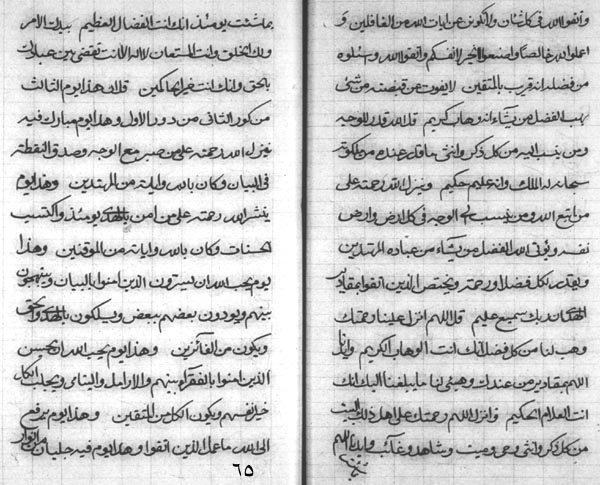 واتقوا الله في كل شان ولا تكونن عن ايات الله من الغافلين و
اعملوا لله خالصا واصنعوا الخير لانفسكم واتقوا الله وسئلوه
من فضله انه قريب بالمتقين لا يفوت عن قبضته من شئ
يهب الفضل من يشاء انه وهاب كريم قل الله قدر للوجه
ومن ينسب اليه من كل ذكر وانثى ما قدر عنده من ملكوته
سبحانه له الملك وانه عليم حكيم وينزل الله رحمته على
من اتبع الله ومن ينسب الى الوجه في كل ارض وارض
نفسه ويؤتي الله الفضل من يشاء من عباده المهتدين
ويقدر لكل فضلا ورحمة ويختص الذين اتقوا بمقادير
ان ربك سميع عليم قل اللهم انزل علينا رحمتك
وهب لنا من كل فضل انك انت الوهاب الكريم وانزل
اللهم مقادير من عندك وهيئ لنا ما يبلغنا اليك انك
انت العلام الحكيم وانزل اللهم رحمتك على اهل ذلك البيت
من كل ذكر وانثى وحي وميت وشاهد وغائب وايدنا اللهم
بما شئت يومئذ انك انت الفضال العظيم بيدك الامر
ولك الخلق وانت المستعان لا اله الا انت تقضي بين عبادك
بالحق وانك انت خير الحاكمين قل ان هذا يوم الثالث
من كور الثاني من دور الاول وهذا يوم مبارك فيه
ينزل الله رحمته على من صبر مع الوجه وصدق النقطة
في البيان وكان بالله واياته من المهتدين وهذا يوم
ينشر الله رحمته على من امن بالهدى يومئذ واكتسب
الحسنات وكان بالله واياته من الموقنين وهذا
يوم يحب الله ان يسترون الذين امنوا بالبيان وينهجون
بينهم ويوددون بعضهم ببعض ويسلكون بالحق
ويكون من الفائزين وهذا يوم يحب الله ان يحسن
الذين امنوا بالفقراء بينهم والارامل واليتامى ويجلب الكل
خير نفسهم ويكون الكل من المتقين وهذا يوم يرفع
الى الله ما عمل الذين اتقوا وهذا يوم فيه جليان من انوار
٦٥